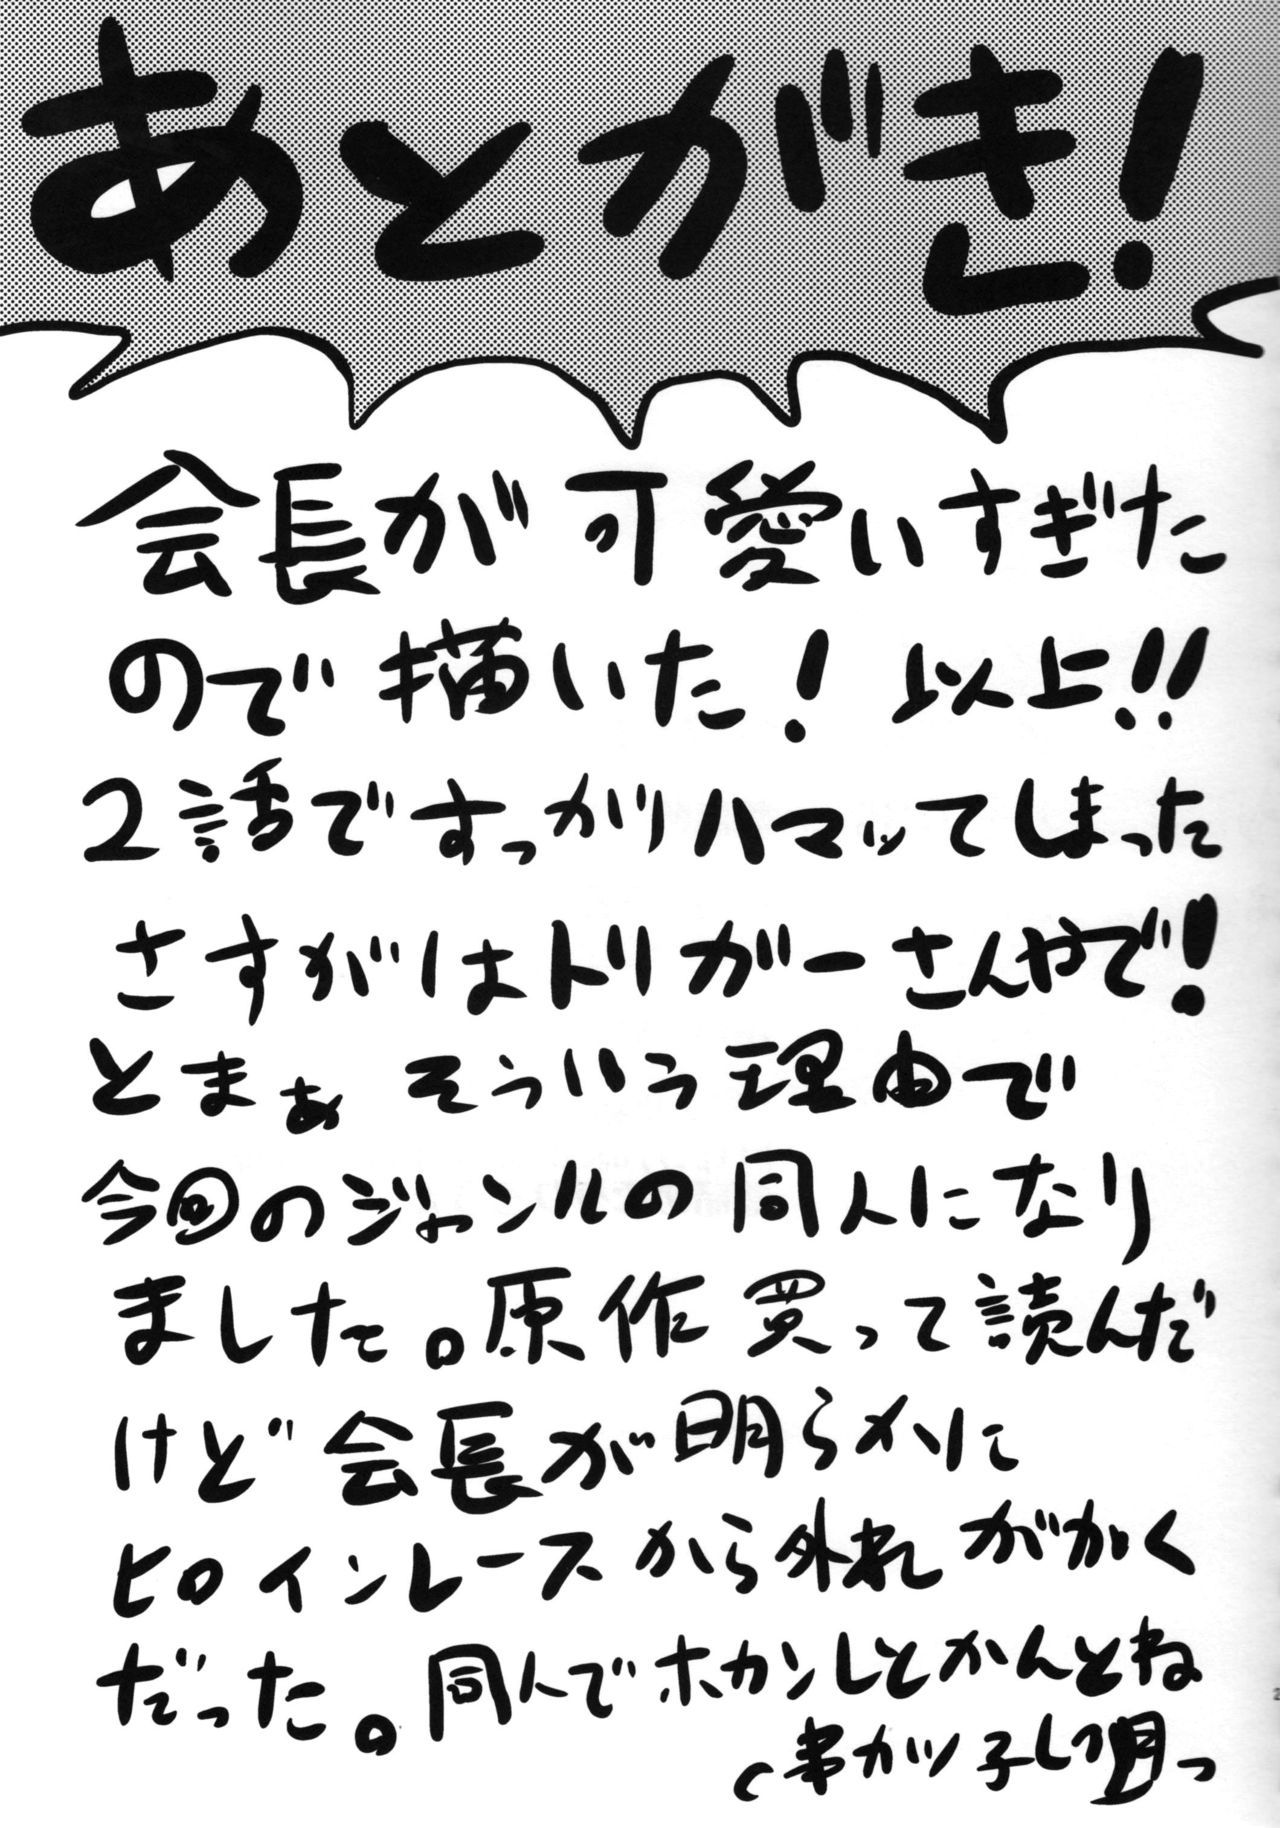 あとがき!
会長が可愛いすぎた
ので描いた! 以上!!
2話ですっかりハマッてしまった
さすがはトリガーさんやで!
とまぁ そういう理由で
今回のジャンルの同人になり
ました。原作買って読んだ
けど会長が明らかに
ヒロインレースから外れ ががく
だった。同人でホカンしとかんとね
串カツ子
2